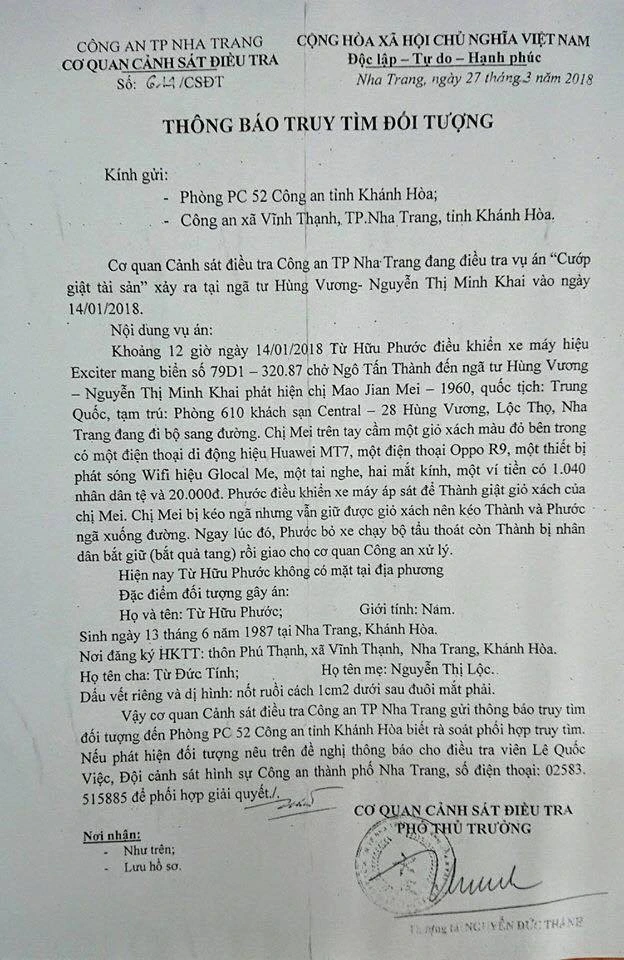 CÔNG AN TP NHA TRANG
CƠ QUAN CẢNH SÁT ĐIỀU TRA
Số: /CSĐT
CỘNG HÒA XÃ HỘI CHỦ NGHĨA VIỆT NAM
Độc lập – Tự do – Hạnh phúc
Nha Trang, ngày 27 tháng 3 năm 2018
THÔNG BÁO TRUY TÌM ĐỐI TƯỢNG
Kính gửi:
- Phòng PC 52 Công an tỉnh Khánh Hòa;
- Công an xã Vĩnh Thạnh, TP.Nha Trang, tỉnh Khánh Hòa.
Cơ quan Cảnh sát điều tra Công an TP Nha Trang đang điều tra vụ án “Cướp
giật tài sản” xảy ra tại ngã tư Hùng Vương- Nguyễn Thị Minh Khai vào ngày
14/01/2018.
Nội dung vụ án:
Khoảng 12 giờ ngày 14/01/2018 Từ Hữu Phước điều khiển xe máy hiệu
Exciter mang biển số 79D1 – 320.87 chở Ngô Tấn Thành đến ngã tư Hùng Vương
– Nguyễn Thị Minh Khai phát hiện chị Mao Jian Mei – 1960, quốc tịch: Trung
Quốc, tạm trú: Phòng 610 khách sạn Central – 28 Hùng Vương, Lộc Thọ, Nha
Trang đang đi bộ sang đường. Chị Mei trên tay cầm một giỏ xách màu đỏ bên trong
có một điện thoại di động hiệu Huawei MT7, một điện thoại Oppo R9, một thiết bị
phát sóng Wifi hiệu Glocal Me, một tai nghe, hai mắt kính, một ví tiền có 1.040
nhân dân tệ và 20.000đ. Phước điều khiển xe máy áp sát để Thành giật giỏ xách của
chị Mei. Chị Mei bị kéo ngã nhưng vẫn giữ được giỏ xách nên kéo Thành và Phước
ngã xuống đường. Ngay lúc đó, Phước bỏ xe chạy bộ tẩu thoát còn Thành bị nhân
dân bắt giữ (bắt quả tang) rồi giao cho cơ quan Công an xử lý.
Hiện nay Từ Hữu Phước không có mặt tại địa phương
Đặc điểm đối tượng gây án:
Họ và tên: Từ Hữu Phước; Giới tính: Nam.
Sinh ngày 13 tháng 6 năm 1987 tại Nha Trang, Khánh Hòa.
Nơi đăng ký HKTT: thôn Phú Thạnh, xã Vĩnh Thạnh, Nha Trang, Khánh Hòa.
Họ tên cha: Từ Đức Tính; Họ tên mẹ: Nguyễn Thị Lộc.
Dấu vết riêng và dị hình: nốt ruồi cách 1cm2 dưới sau đuôi mắt phải.
Vậy cơ quan Cảnh sát điều tra Công an TP Nha Trang gửi thông báo truy tìm
đối tượng đến Phòng PC 52 Công an tỉnh Khánh Hòa biết rà soát phối hợp truy tìm.
Nếu phát hiện đối tượng nêu trên đề nghị thông báo cho điều tra viên Lê Quốc
Việc, Đội cảnh sát hình sự Công an thành phố Nha Trang, số điện thoại: 02583.
515885 để phối hợp giải quyết./.
CƠ QUAN CẢNH SÁT ĐIỀU TRA
PHÓ THỦ TRƯỞNG
Nơi nhận:
- Như trên;
- Lưu hồ sơ.
Thượng tá NGUYỄN ĐỨC THÀNH